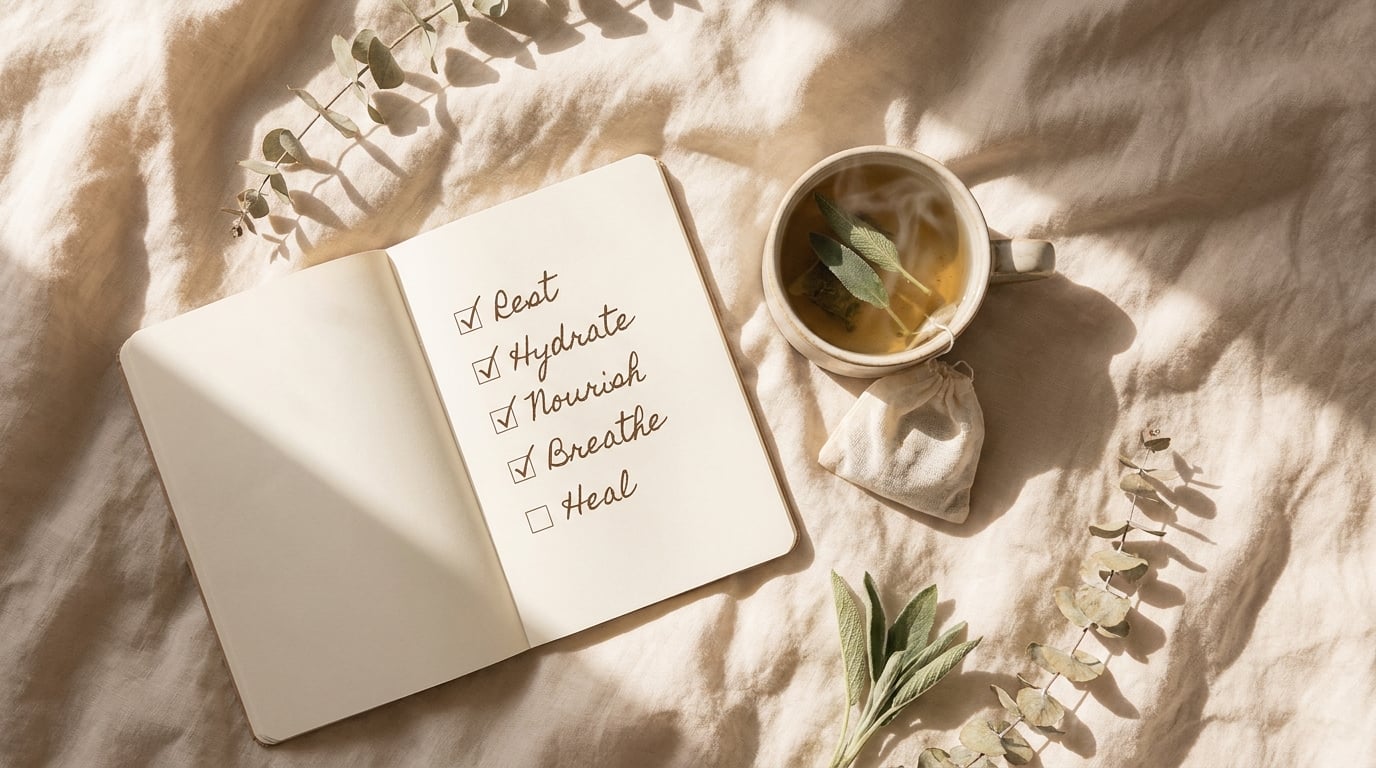 Rest
Hydrate
Nourish
Breathe
Heal